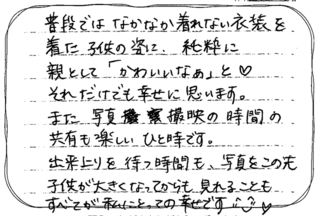 普段では なかなか着れない衣装を
着た 子供の姿に、純粋に
親として「かわいいなぁ」と♡
それだけでも幸せに思います。
また 写真 撮映の 時間の
共有も楽しい ひと時です。
出来上りを 待つ時間も、写真をこの先
子供が大きくなってからも 見れることも
すべてが 私にとっての幸せです